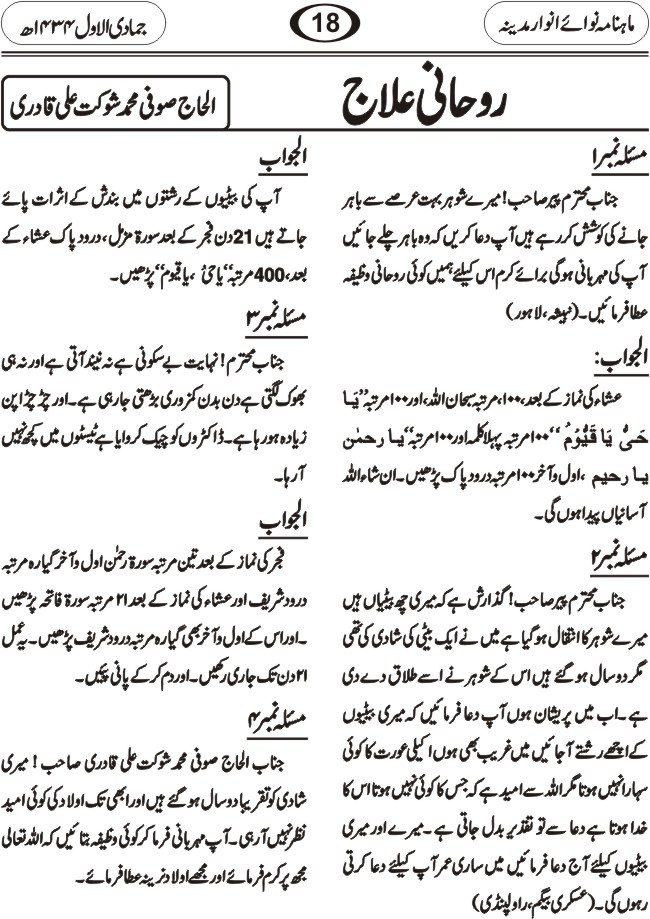 ماہنامہ نوائے انوار مدینہ
18
جمادی الاول ۱۴۳۴ھ
روحانی علاج
الحاج صوفی محمد شوکت علی قادری
مسئلہ نمبر ۱
جناب محترم پیر صاحب! میرے شوہر بہت عرصے سے باہر
جانے کی کوشش کر رہے ہیں آپ دعا کریں کہ وہ باہر چلے جائیں
آپ کی مہربانی ہوگی برائے کرم اس کیلئے ہمیں کوئی روحانی وظیفہ
عطا فرمائیں۔ (نبیشہ، لاہور)
الجواب:
عشاء کی نماز کے بعد، ۱۰۰ مرتبہ سبحان اللہ، اور ۱۰۰ مرتبہ ’’يَا
حَيُّ يَا قَيُّوْمُ‘‘ ۱۰۰ مرتبہ پہلا کلمہ اور ۱۰۰ مرتبہ ’’یا رحمٰن
یا رحیم، اول و آخر ۱۰۰ مرتبہ درود پاک پڑھیں۔ ان شاء اللہ
آسانیاں پیدا ہوں گی۔
مسئلہ نمبر ۲
جناب محترم پیر صاحب! گذارش ہے کہ میری چھ بیٹیاں ہیں
میرے شوہر کا انتقال ہوگیا ہے میں نے ایک بیٹی کی شادی کی تھی
مگر دو سال ہو گئے ہیں اس کے شوہر نے اسے طلاق دے دی
ہے۔ اب میں پریشان ہوں آپ دعا فرمائیں کہ میری بیٹیوں
کے اچھے رشتے آ جائیں میں غریب بھی ہوں اکیلی عورت کا کوئی
سہارا نہیں ہوتا مگر اللہ سے امید ہے کہ جس کا کوئی نہیں ہوتا اس کا
خدا ہوتا ہے دعا سے تو تقدیر بدل جاتی ہے۔ میرے اور میری
بیٹیوں کیلئے آج دعا فرمائیں میں ساری عمر آپ کیلئے دعا کرتی
رہوں گی۔ (عسکری بیگم، راولپنڈی)
الجواب
آپ کی بیٹیوں کے رشتوں میں بندش کے اثرات پائے
جاتے ہیں 21 دن فجر کے بعد سورۃ مزمل، درود پاک عشاء کے
بعد، 400 مرتبہ ’’یا حیُّ، یا قیوم‘‘ پڑھیں۔
مسئلہ نمبر ۳
جناب محترم! نہایت بے سکونی ہے نہ نیند آتی ہے اور نہ ہی
بھوک لگتی ہے دن بدن کمزوری بڑھتی جا رہی ہے۔ اور چڑچڑا پن
زیادہ ہو رہا ہے۔ ڈاکٹروں کو چیک کروایا ہے ٹیسٹوں میں کچھ نہیں
آ رہا۔
الجواب
فجر کی نماز کے بعد تین مرتبہ سورۃ رحمٰن اول و آخر گیارہ مرتبہ
درود شریف اور عشاء کی نماز کے بعد ۲۱ مرتبہ سورۃ فاتحہ پڑھیں
۔ اور اس کے اول و آخر بھی گیارہ مرتبہ درود شریف پڑھیں۔ یہ عمل
۲۱ دن تک جاری رکھیں۔ اور دم کر کے پانی پئیں۔
مسئلہ نمبر ۴
جناب الحاج صوفی محمد شوکت علی قادری صاحب! میری
شادی کو تقریبا دو سال ہو گئے ہیں اور ابھی تک اولاد کی کوئی امید
نظر نہیں آ رہی۔ آپ مہربانی فرما کر کوئی وظیفہ بتائیں کہ اللہ تعالی
مجھ پر کرم فرمائے اور مجھے اولاد نرینہ عطا فرمائے۔